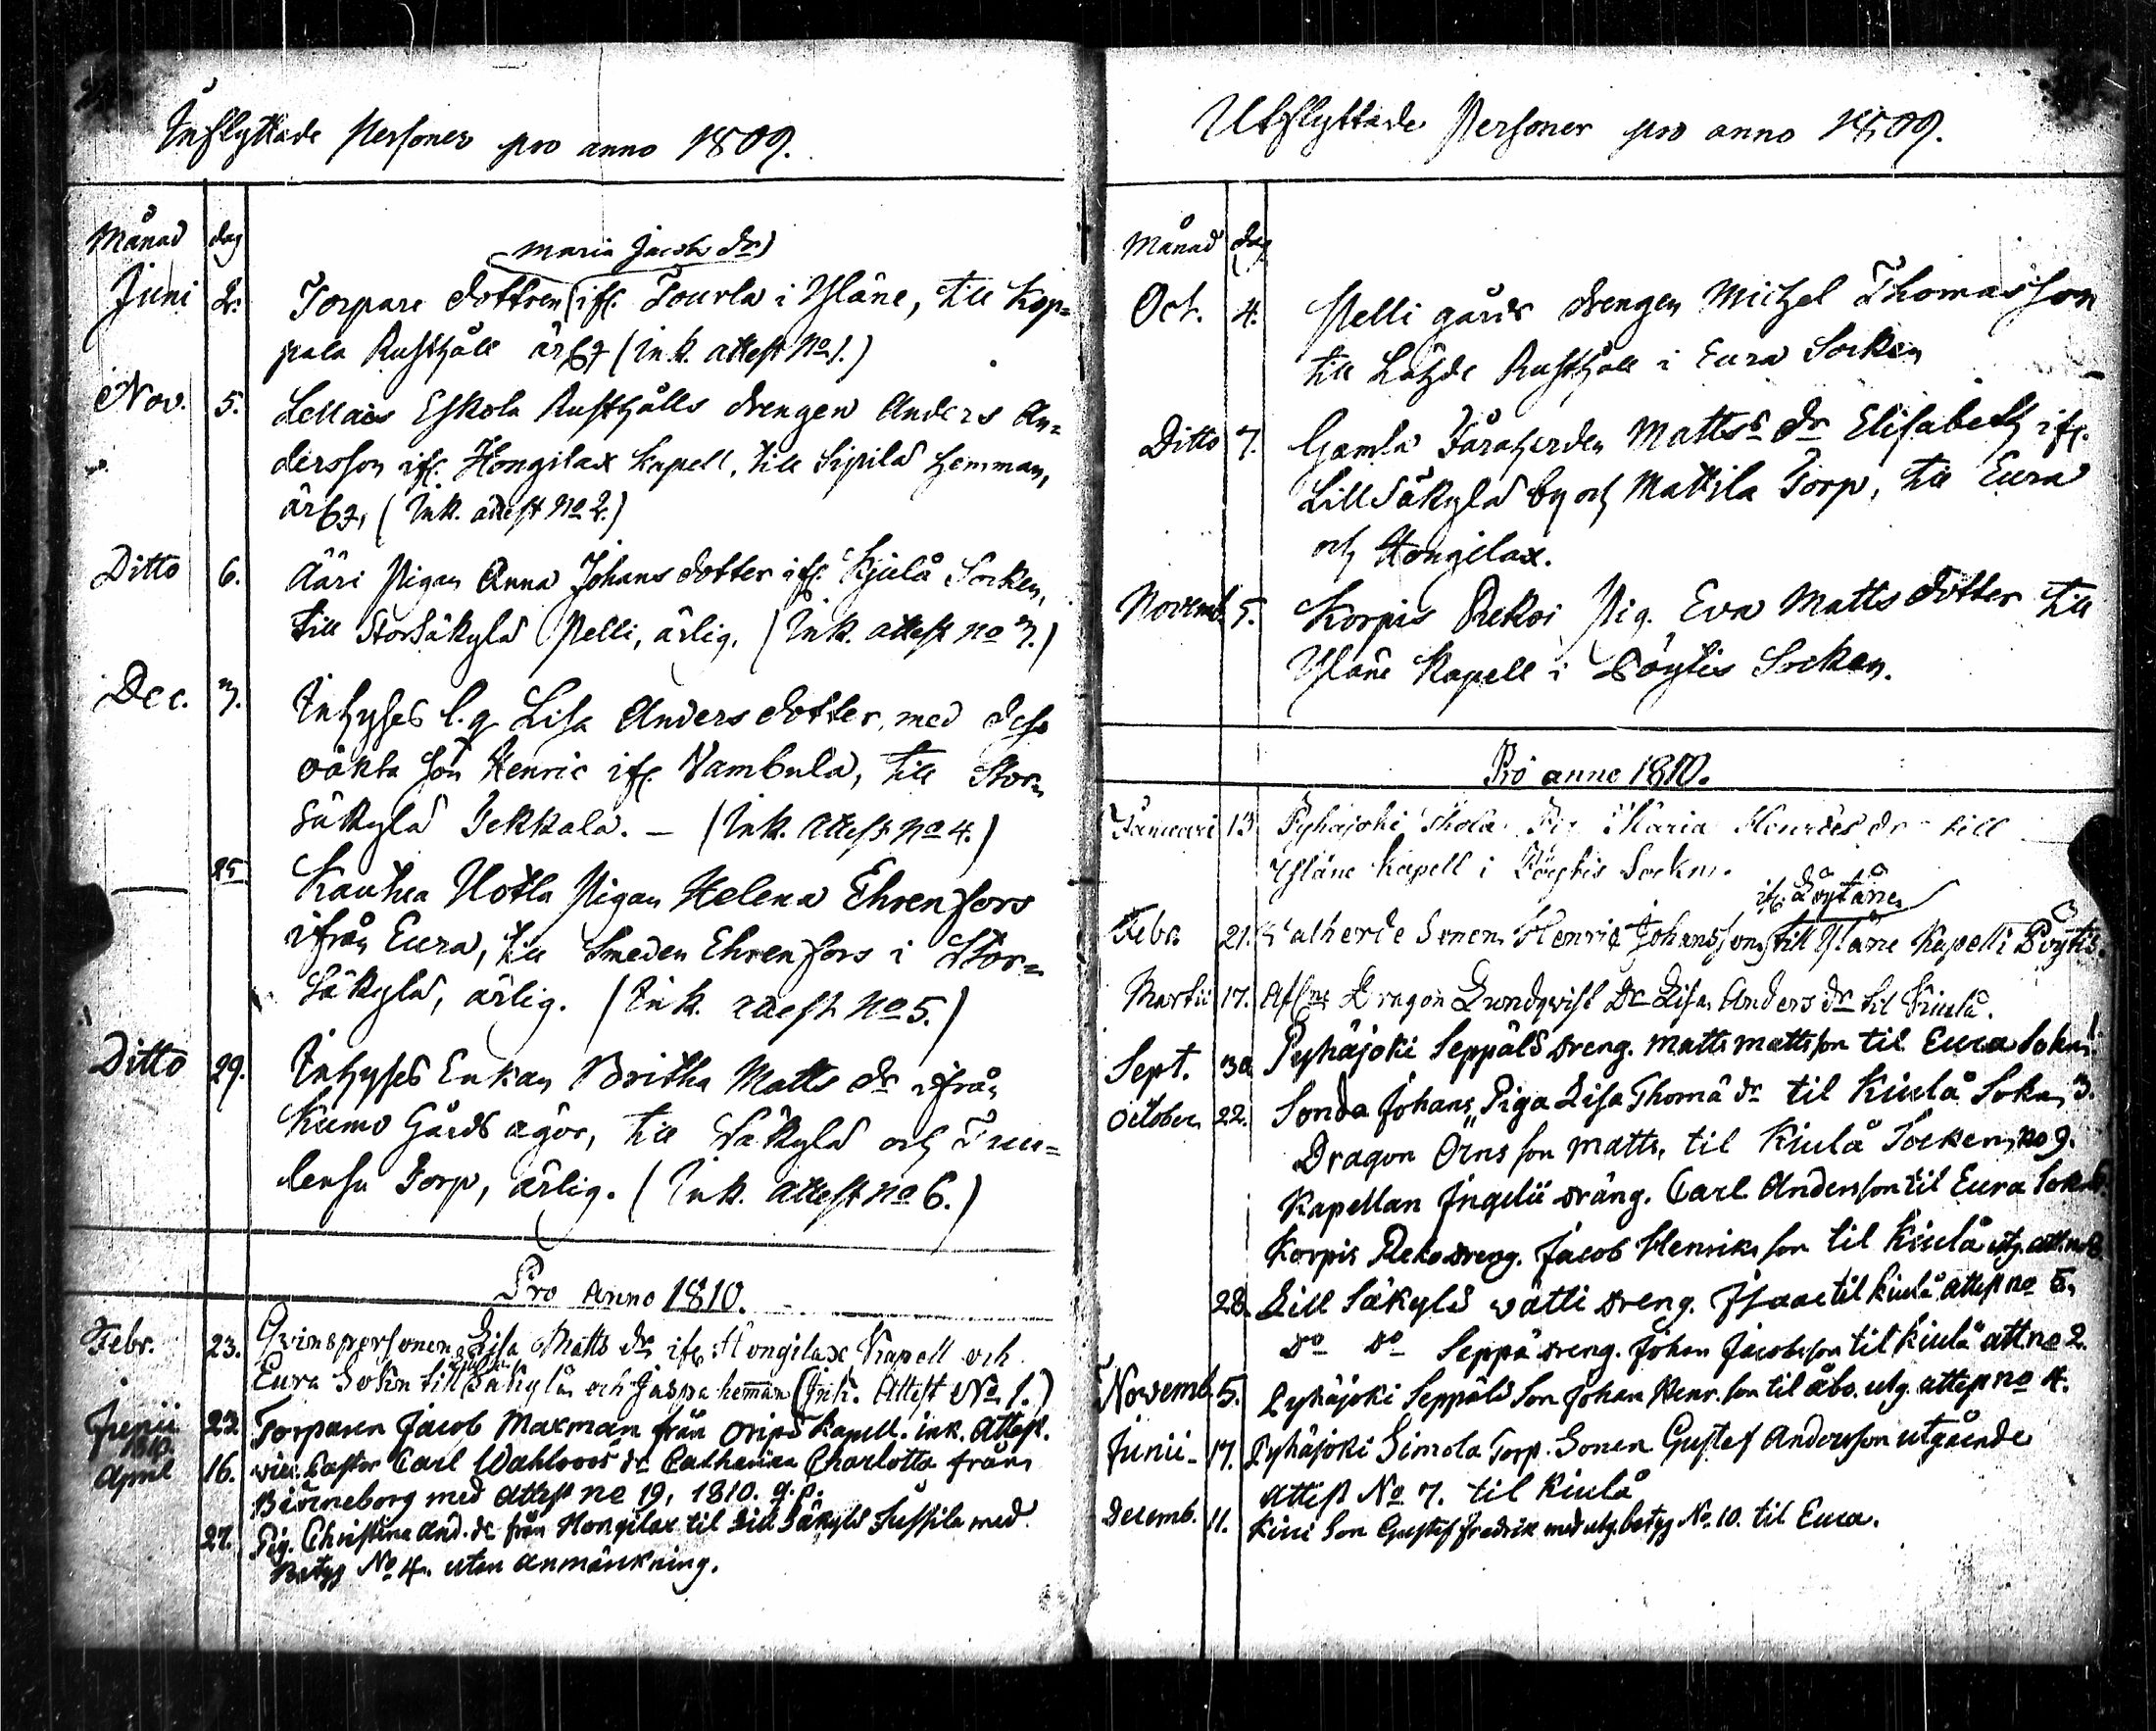 Inflyttade Personer pro anno 1809.
Månad dag
Maria Jacobs dr
Juni 2. Torpare dottren ifr. Tourla i Yläne, till Kop=
pala Rusthåll ärlig (Ink. attest No 1.)
Nov. 5. Lellais Eskola Rusthålls drengen Anders An=
dersson ifr. Hongilax Kapell, till Sipilä hemman,
ärlig, (Ink. attest No 2.)
Ditto 6. Ääri Pigan Anna Johans dotter ifr. Kjulå Socken,
till Storsäkylä Pelli, ärlig. (Ink. attest no 3.)
Dec. 3. Inhyses l. q. Lisa Anders dotter, med dess
oäkta son Henric ifr. Vambula, till Stor=
säkylä Jekkala. — (Ink. attest No 4.)
— 25 Kauhia Uotla Pigan Helena Ehrenfors
ifrån Eura, till Smeden Ehrenfors i Stor=
säkylä, ärlig. (Ink. attest No 5.)
Ditto 29. Inhyses Enkan Britha Matts dr ifrån
Kumo Gårds ägor, till Säkylä och Tuu=
lensu Torp, ärlig. (Ink. attest no 6.)
Pro Anno 1810.
Febr. 23. Qvinspersonen Lisa Matts dr ifr. Hongilax Kapell och
Eura Sokn till Säkylä och Jaspa hemman (Ink. Attest No 1.)
Junii 22 Torparen Jacob Maxman från Oripä Kapell. ink. Attest.
1810.
April 16. vice Pastor Carl Wahlroos dr Catharina Charlotta från
Biörneborg med Attest no 19, 1810. q. p.
27. Pig. Christina And. dr från Hongilax til Lill Säkylä Jussila med
Betyg No 4. utan anmärkning.
Utflyttade Personer pro anno 1809.
Månad dag
Oct. 4. Pelli gårds drengen Michel Thomasson
till Lähde Rusthåll i Eura Socken
Ditto 7. Gamla Fåraherden Mattss dr Elisabeth ifr.
Lill Säkylä by och Mattila Torp, till Eura
och Hongilax.
Novemb. 5. Korpis Rekoi Pig. Eva Matts dotter till
Yläne Kapell i Pöytis Socken.
Pro anno 1810.
Januari 13 Pyhäjoki Pig Maria Henrics dr till
Yläne Kapell i Pöytis Sockn.
ifr. Löytäne
Febr 21. Vatherde Sonen Henric Johansson till Yläne Kapell i Pöytis.
Martii 17. Afsne Dragon Lundqvist Dr Lisa Anders dr til Kiulå.
Sept. 30 Pyhäjoki Seppälä dreng. Matts mattsson til Eura Sokn 1.
October 22. Sonda Johans Piga Lisa Thomä dr til Kiulå Sokn 3.
Dragon Örns son Matts, til Kiulå Socken, no 9.
Kapellan Ingelii dräng. Carl Andersson til Eura Sokn 6.
Korpis Reko dreng. Jacob Henriksson til Kiulå utg. att. no 8
28. Lill Säkylä wätti dreng. Isaac til Kiulå attest no 5.
Do Do Seppä dreng. Johan Jacobsson til Kiulå att no 2.
Novemb. 5. Pyhäjoki Seppälä Son Johan Henr. son til Åbo. utg. attest no 4.
Junii 17. Pyhäjoki Simola Torp. Sonen Gustef Andersson utgående
attest No 7. til Kiulå
Decemb. 11. Kiui Son Gustef Fredrik med utg. betyg No. 10. til Eura.